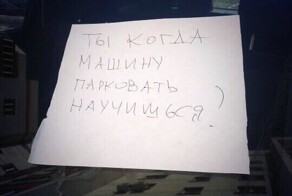 ТЫ КОГДА
МАШИНУ
ПАРКОВАТЬ
НАУЧИШЬСЯ?